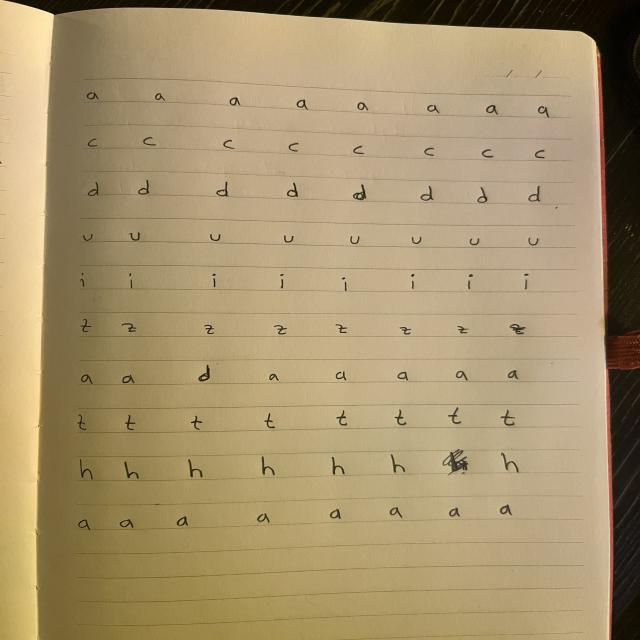 a a a a a a a a
c c c c c c c c
d d d d d d d d
u u u u u u u u
i i i i i i i i
z z z z z z z z
a a d a a a a a
t t t t t t t t
h h h h h h h
a a a a a a a a